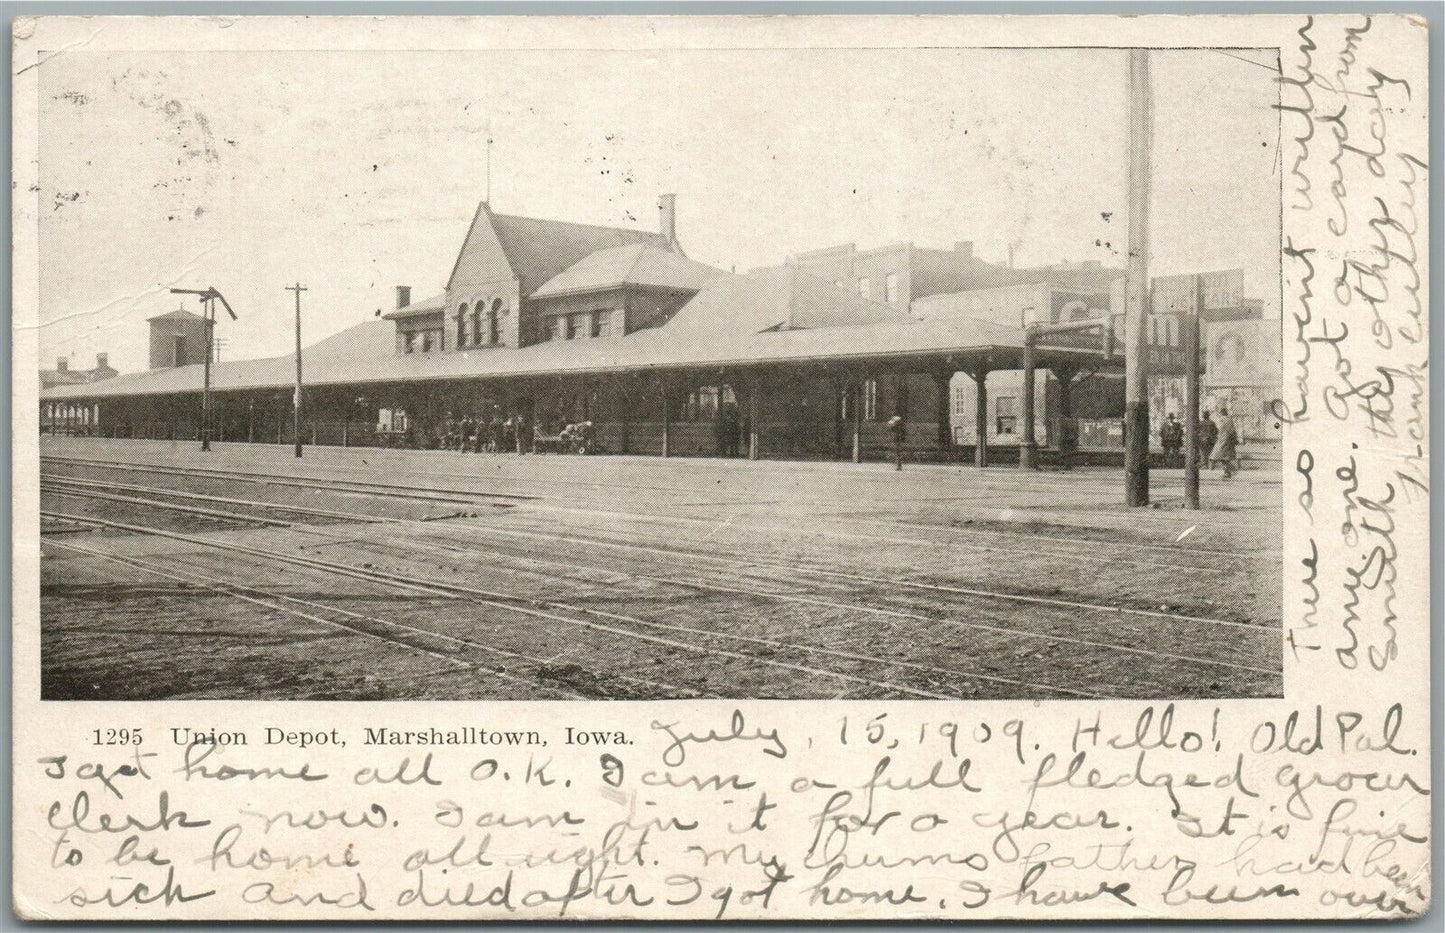 1295 Union Depot, Marshalltown, Iowa.
July, 15, 1909. Hello! Old Pal.
I got home all O.K. I am a full fledged grocer
clerk now. I am in it for a year. It is fine
to be home all right. My chums father had been
sick and died after I got home. I have been over
there so havent written
any one. Got a card from
Smith the other day
Frank
CARS